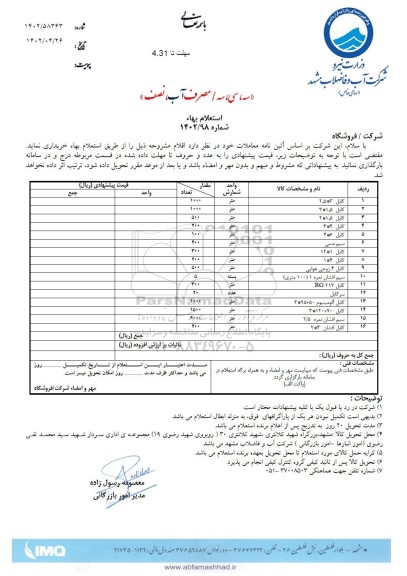 باسمه تعالی
شماره: ۱۴۰۲/۵۸۳۶۳
تاریخ: ۱۴۰۲/۰۴/۲۶
پیوست:
وزارت نیرو
شرکت آب و فاضلاب مشهد
(سهامی خاص)
مهلت تا 4.31
استعلام بهاء
شماره ۱۴۰۲/۹۸
شرکت / فروشگاه
با سلام، این شرکت بر اساس آئین نامه معاملات خود در نظر دارد اقلام مشروحه ذیل را از طریق استعلام بهاء خریداری نماید.
مقتضی است با توجه به توضیحات زیر، قیمت پیشنهادی را به عدد و حروف تا مهلت داده شده در قسمت مربوطه درج و در سامانه
بارگذاری نمائید. به پیشنهاداتی که مشروط و مبهم و بدون مهر و امضاء باشد و یا بعد از موعد مقرر تحویل داده شود، ترتیب اثر داده نخواهد
شد.
ردیف نام و مشخصات کالا واحد شمارش مقدار تعداد قیمت پیشنهادی (ریال) واحد جمع
۱ کابل ۳*۲٫۵ متر ۱۰۰۰
۲ کابل ۱٫۵*۳ متر ۱۰۰۰
۳ کابل ۱٫۵*۲ متر ۵۰۰
۴ کابل ۴*۴ متر ۲۰۰
۵ کابل ۶*۴ متر ۱۰۰
۶ سیم مسی متر ۲۰۰
۷ کابل ۱*۱۲ متر ۳۰۰
۸ کابل ۱*۴ متر ۲۰۰
۹ کابل ۲ زوجی هوایی متر ۵۰۰
۱۰ سیم افشان نمره ۱ (۱۰۰ متری) بسته ۵
۱۱ کابل RG ۲۱۳ متر ۳۰۰
۱۲ سرکابل عدد ۲۰
۱۳ کابل آلومینیوم
۱۴ کابل
۱۵ سیم افشان نمره ۲/۵ متر
۱۶ کابل افشان ۲*۲ متر ۲۰۰
جمع (ریال)
مالیات بر ارزش افزوده (ریال)
جمع کل به حروف (ریال):
طبق مشخصات فنی پیوست که میبایست مهر و امضاء و به همراه برگه استعلام در
سامانه بارگزاری گردد
(پاکت الف)
مدت اعتبار این استعلام از تاریخ تکمیل ........ روز
می باشد و حداکثر ظرف مدت ........ روز امکان تحویل میسر است.
مهر و امضاء شرکت/فروشگاه
توضیحات :
۱) شرکت در رد یا قبول یک یا کلیه پیشنهادات مختار است.
۲) بدیهی است تکمیل نبودن هر یک از پاراگرافهای فوق، به منزله ابطال استعلام می باشد
۳) مدت تحویل ۲۰ روز به تدریج پس از اعلام برنده استعلام می باشد.
۴) محل تحویل کالا :مشهد-بزرگراه شهید کلانتری -شهید کلانتری ۳۰ ( روبروی شهید رضوی ۱۹) مجموعه ی اداری سردار شهید سید محمد تقی
رضوی (امور انبارها -امور بازرگانی ) شرکت آب و فاضلاب مشهد می باشد.
۵) کرایه حمل کالای مورد استعلام تا محل تحویل بعهده برنده استعلام می باشد.
۶) تحویل کالا پس از تائید کیفی گروه کنترل کیفی انجام می پذیرد.
۷) شماره تلفن جهت هماهنگی ۳۷۰۰۸۵۰۳-۰۵۱
معصومه رسول زاده
مدیر امور بازرگانی
IMQ
www.abfamashhad.ir